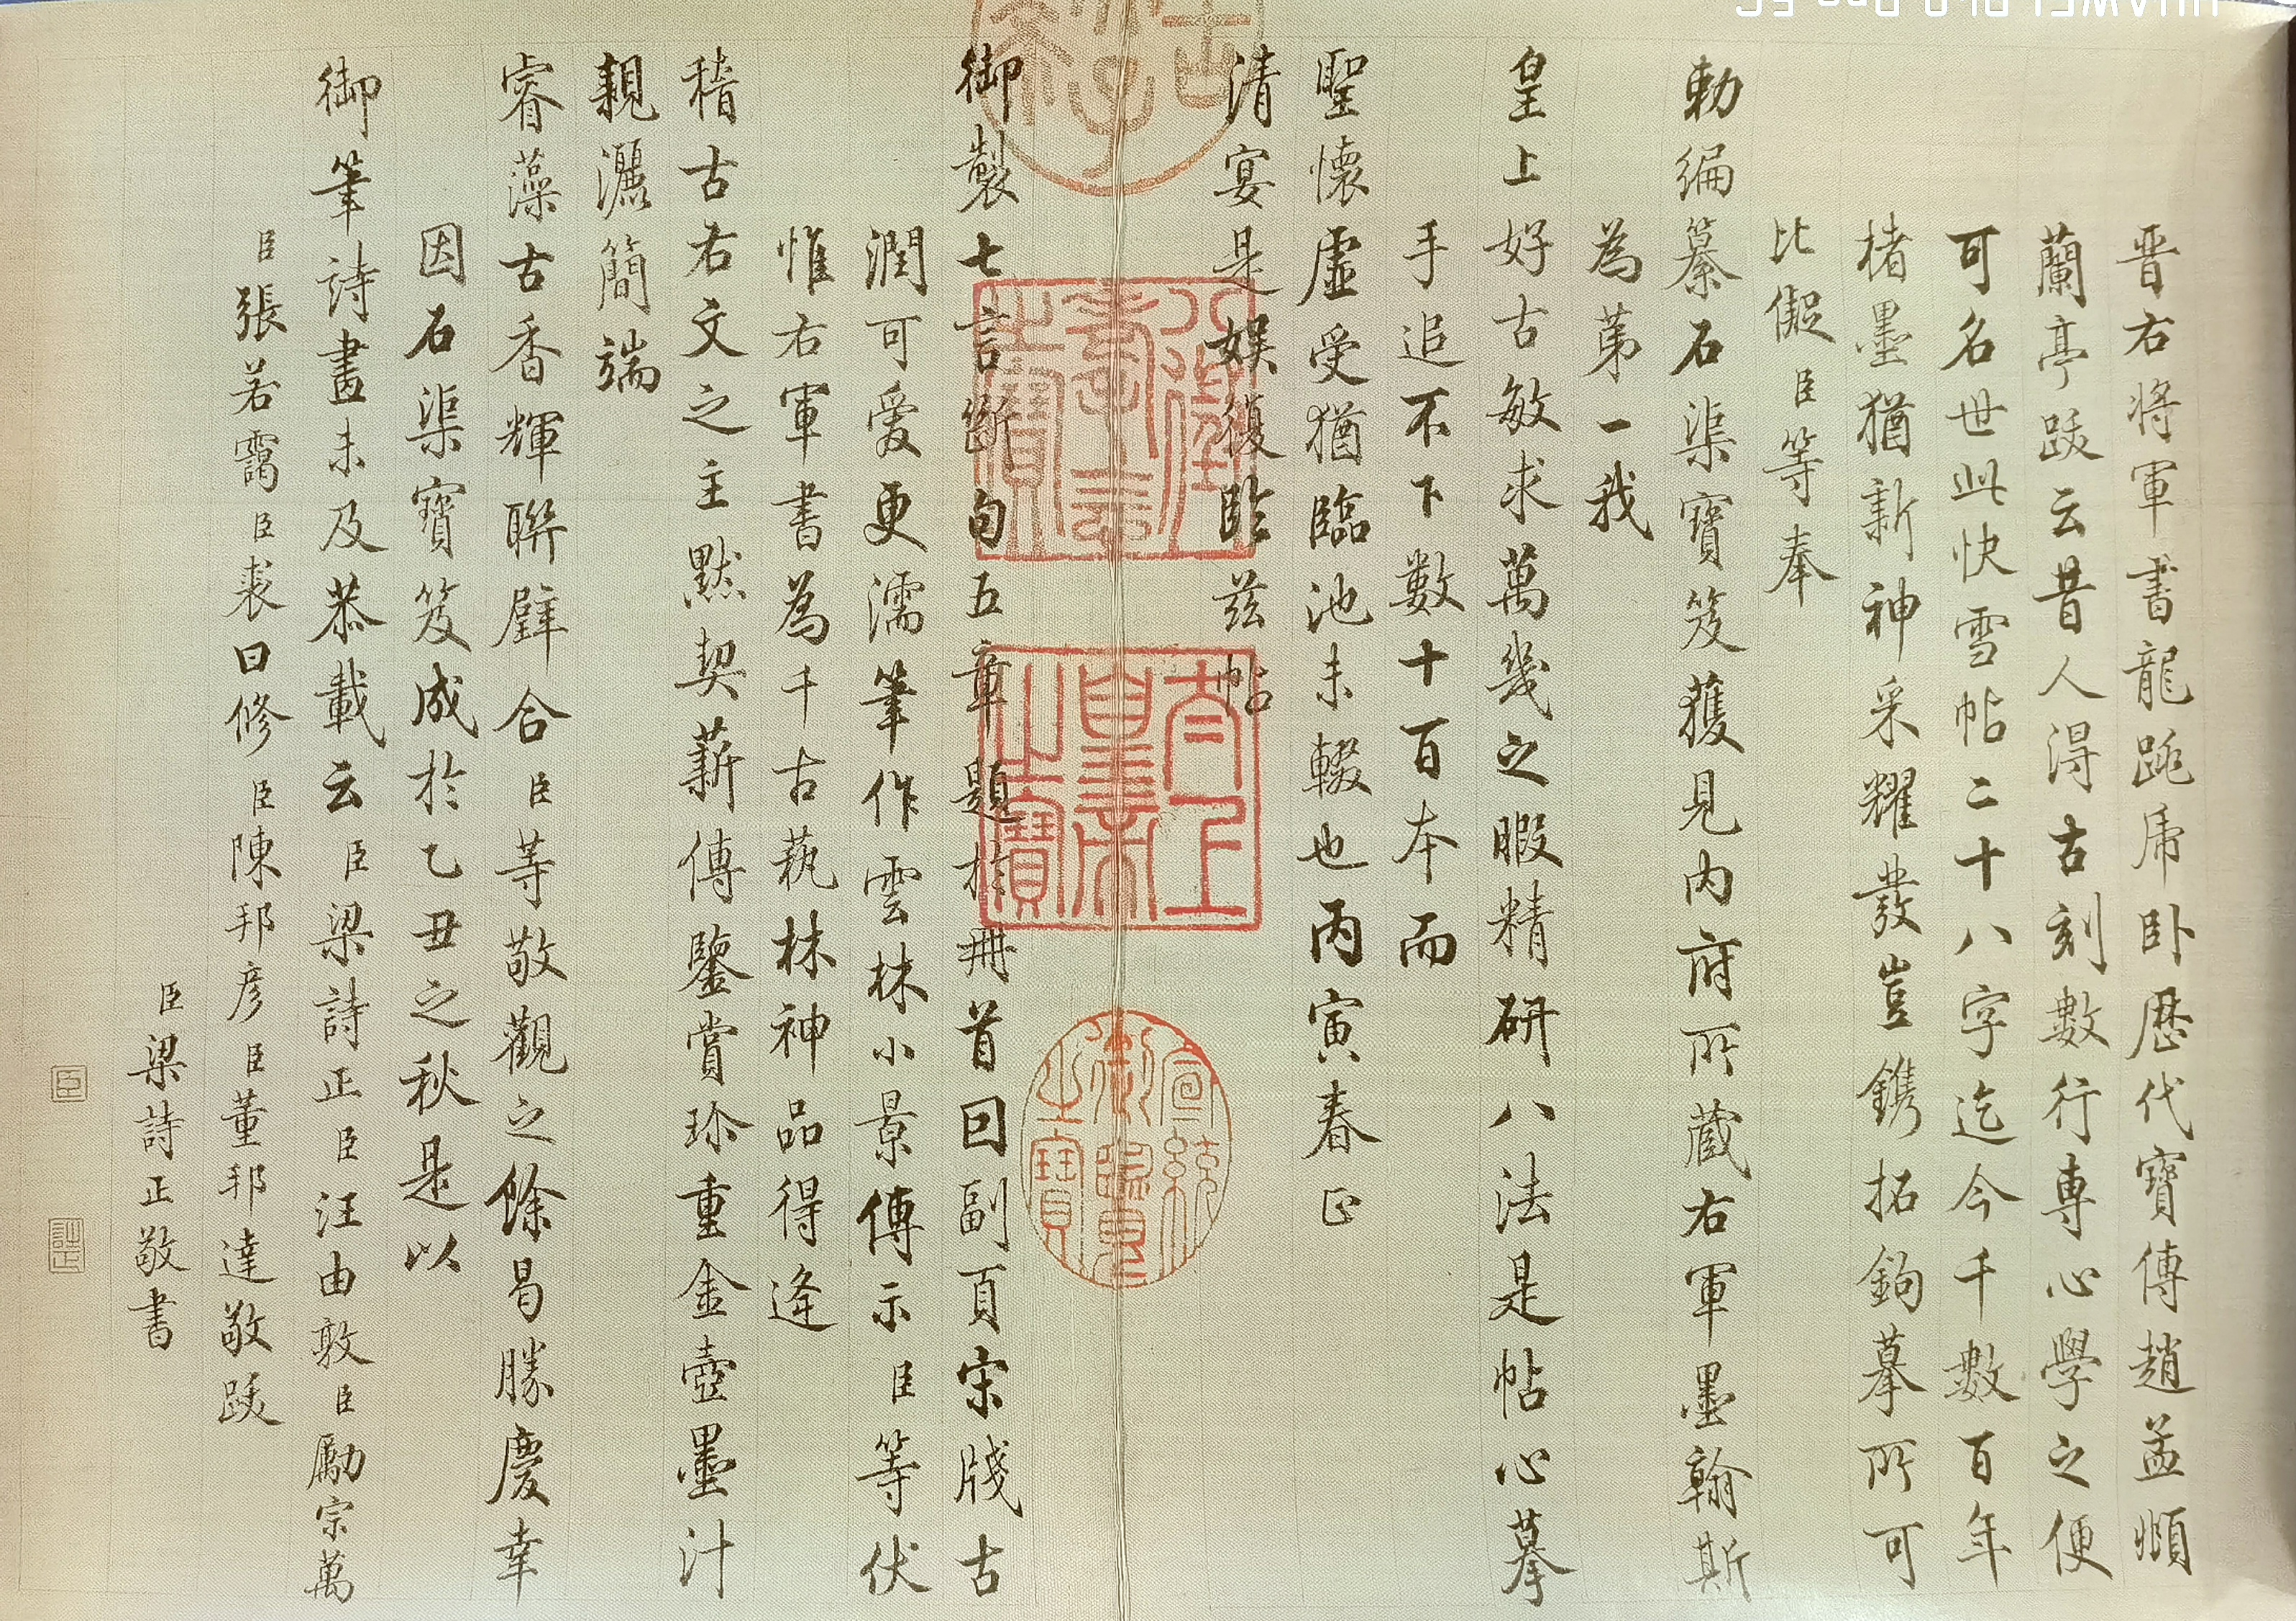 晉右將軍書龍跳虎臥歷代寶傳趙孟頫
蘭亭跋云昔人得古刻數行專心學之便
可名世此快雪帖二十八字迄今千數百年
楮墨猶新神采耀發豈鐫拓鉤摹所可
比儗臣等奉
勅編纂石渠寶笈獲見內府所藏右軍墨翰斯
為第一我
皇上好古敏求萬幾之暇精研八法是帖心摹
手追不下數十百本而
聖懷虛受猶臨池未輟也丙寅春正
清宴是娛復臨茲帖
御製七言斷句五章題於冊首回副頁宋牋古
潤可愛更濡筆作雲林小景傳示臣等伏
惟右軍書為千古蓺林神品得逢
稽古右文之主默契薪傳鑒賞珍重金壺墨汁
親灑簡端
睿藻古香輝聯璧合臣等敬觀之餘曷勝慶幸
因石渠寶笈成於乙丑之秋是以
御筆詩畫未及恭載云臣梁詩正臣汪由敦臣勵宗萬
臣張若靄臣裘曰修臣陳邦彥臣董邦達敬跋
臣梁詩正敬書
八徵耄念之寶
太上皇帝之寶
宣統御覽之寶
臣
詩正